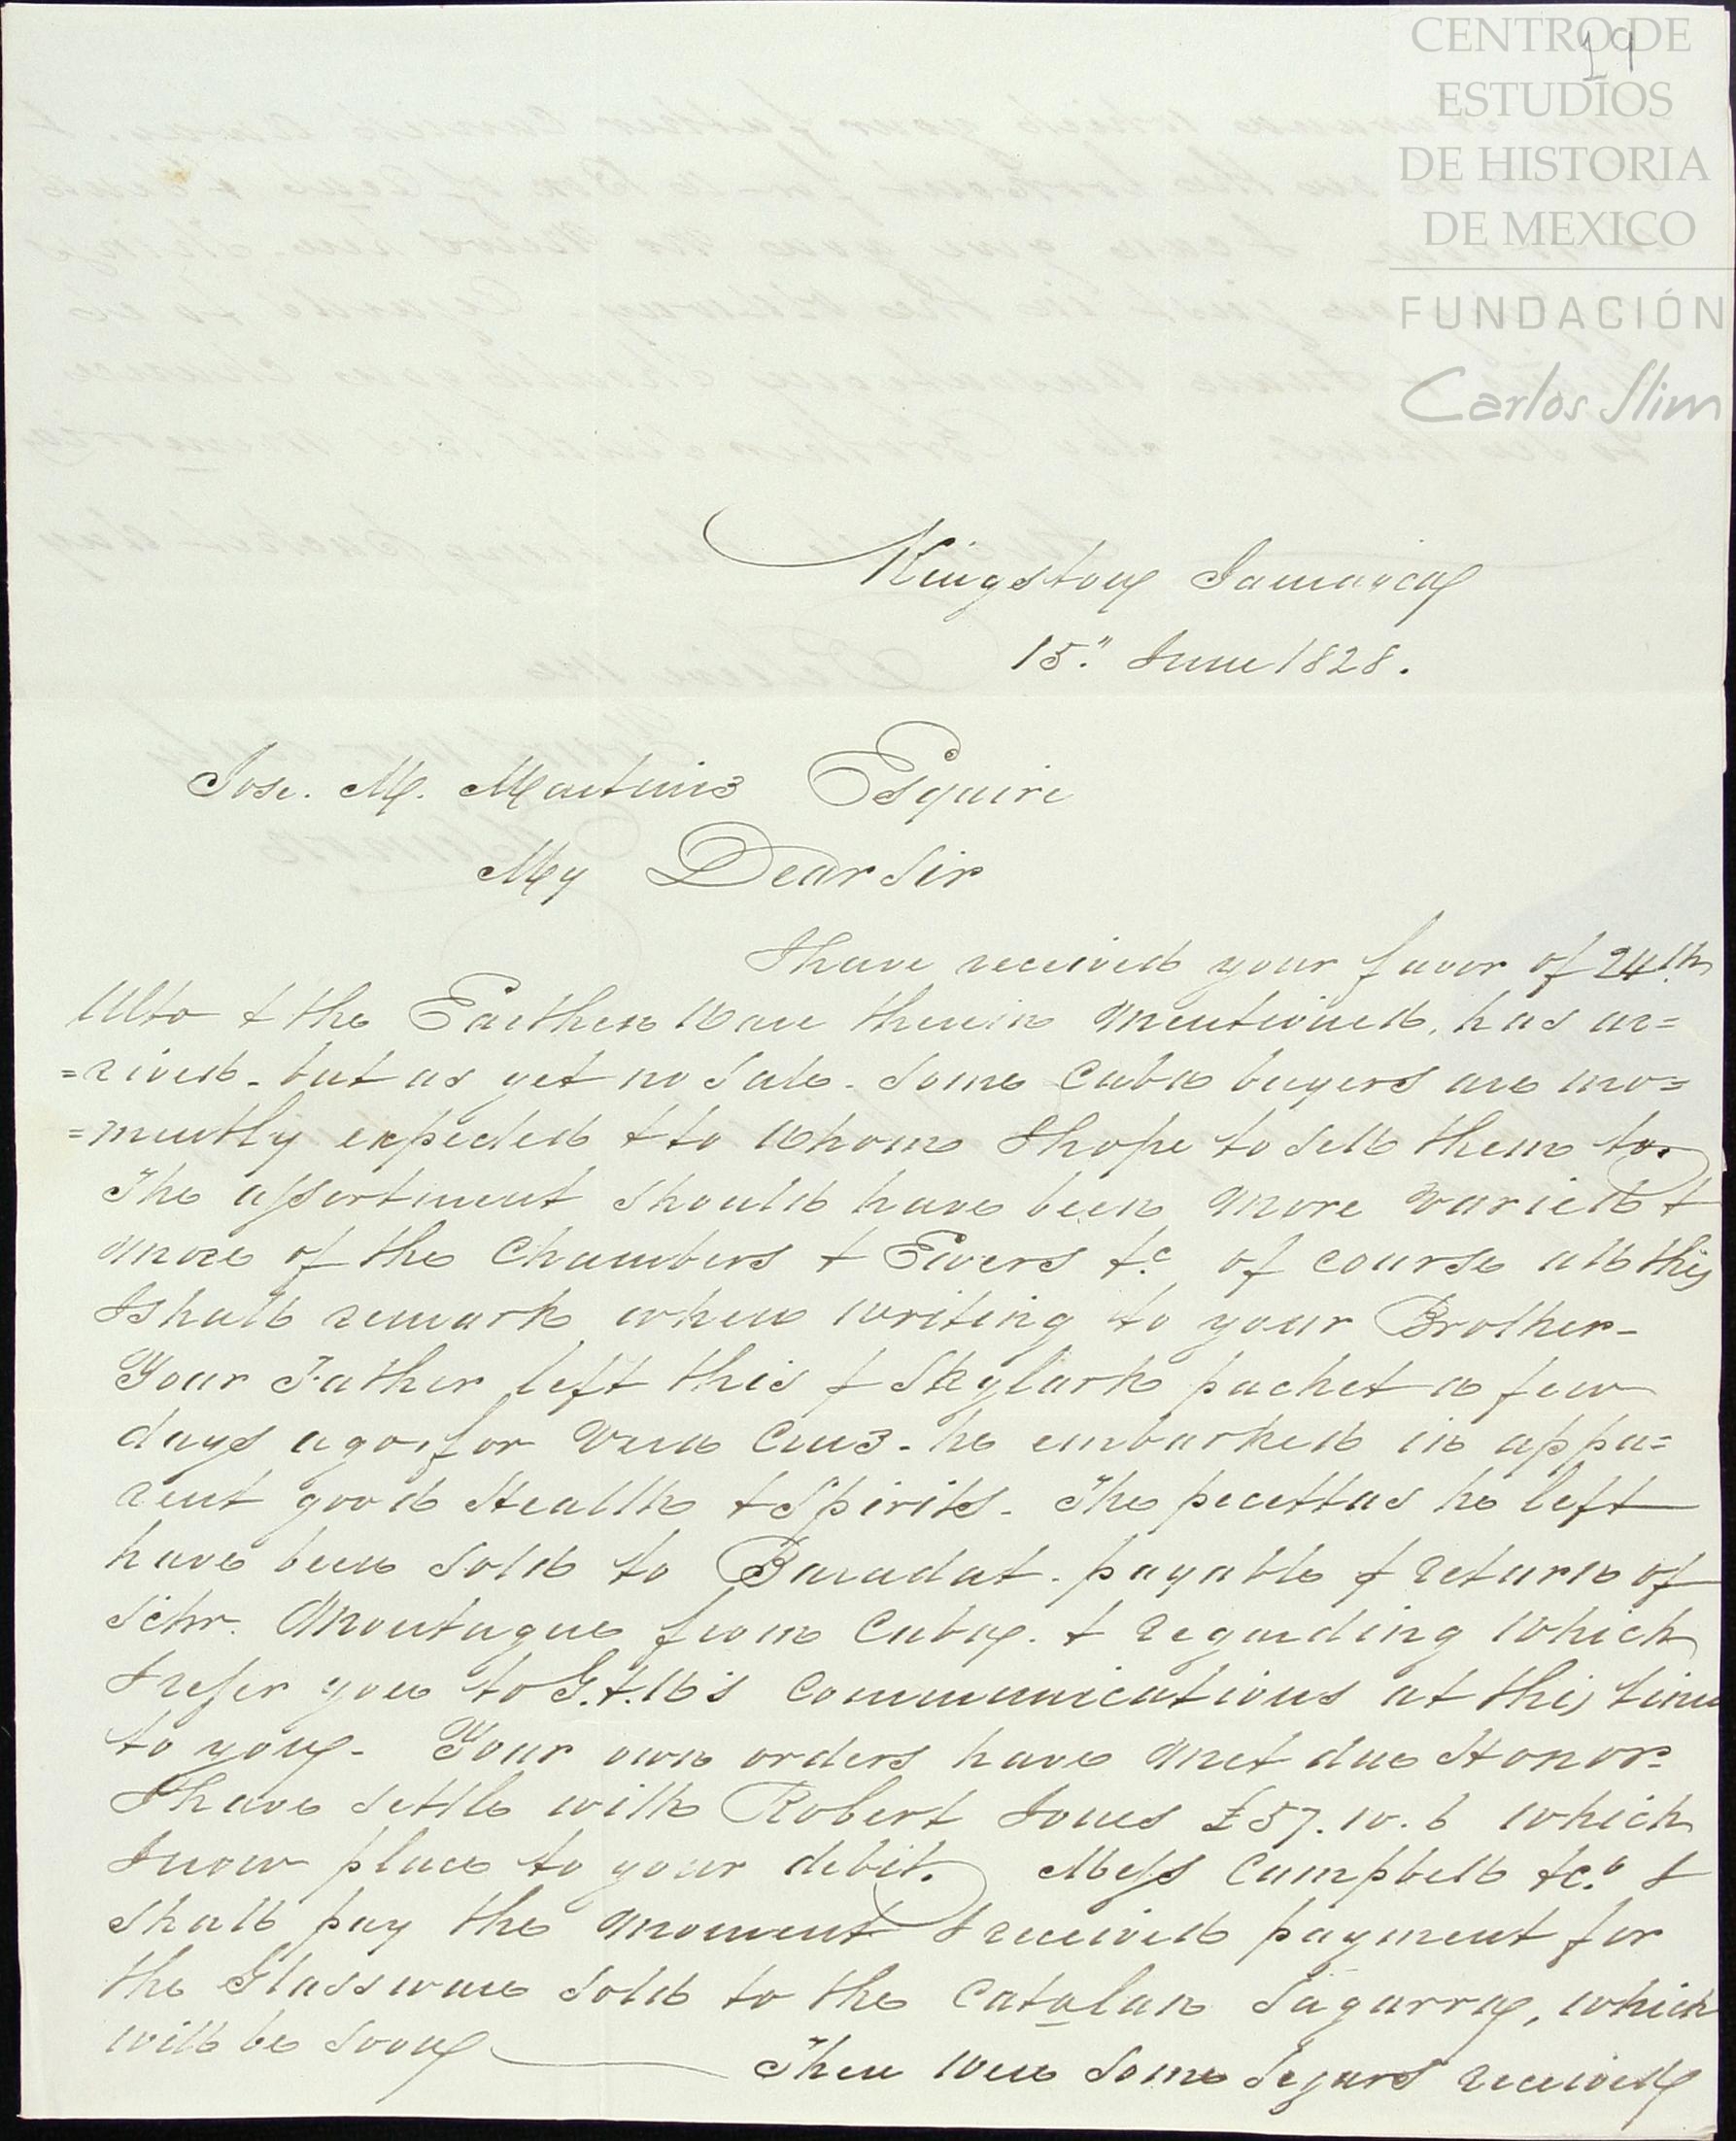 CENTRO DE
ESTUDIOS
DE HISTORIA
DE MEXICO
FUNDACIÓN
Carlos Slim
19
Kingston Jamaica
15." June 1828.
Jose. M. Martinis Esquire
My Dear Sir
I have received your favor of 24th
Ulto & the Earthen Ware therein Mentioned, has ar=
=rived - but as yet no Sale - Some Cuba buyers are mo=
=mently expected & to whom I hope to sell them to.
The assortment should have been more varied &
more of the Chambers & Ewers &c of course all this
I shall remark when writing to your Brother -
Your Father left this p Skylark packet a few
days ago, for Vera Cruz - he embarked in appa=
rent good Health & Spirits - The pecettas he left
have been sold to Baradat - payable p return of
Schr. Montague from Cuba. & regarding which
I refer you to G. & W's Communications at this time
to you - Your own orders have met due Honor -
I have settle with Robert Jones £57.10.6 which
I now place to your debit. Mess Campbell & Co. I
shall pay the moment I received payment for
the Glassware sold to the Catalan Sagarra, which
will be soon
There were some Segars received